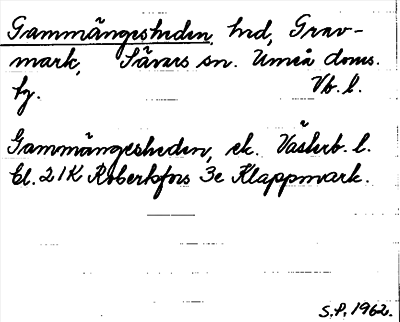 Gammängesheden, hed, Grav-
mark, Sävars sn. Umeå doms.
fg. Vb. l.
Gammängesheden, ek. Västerb. l.
bl. 21K Robertsfors 3e Klappmark.
S.P. 1962.